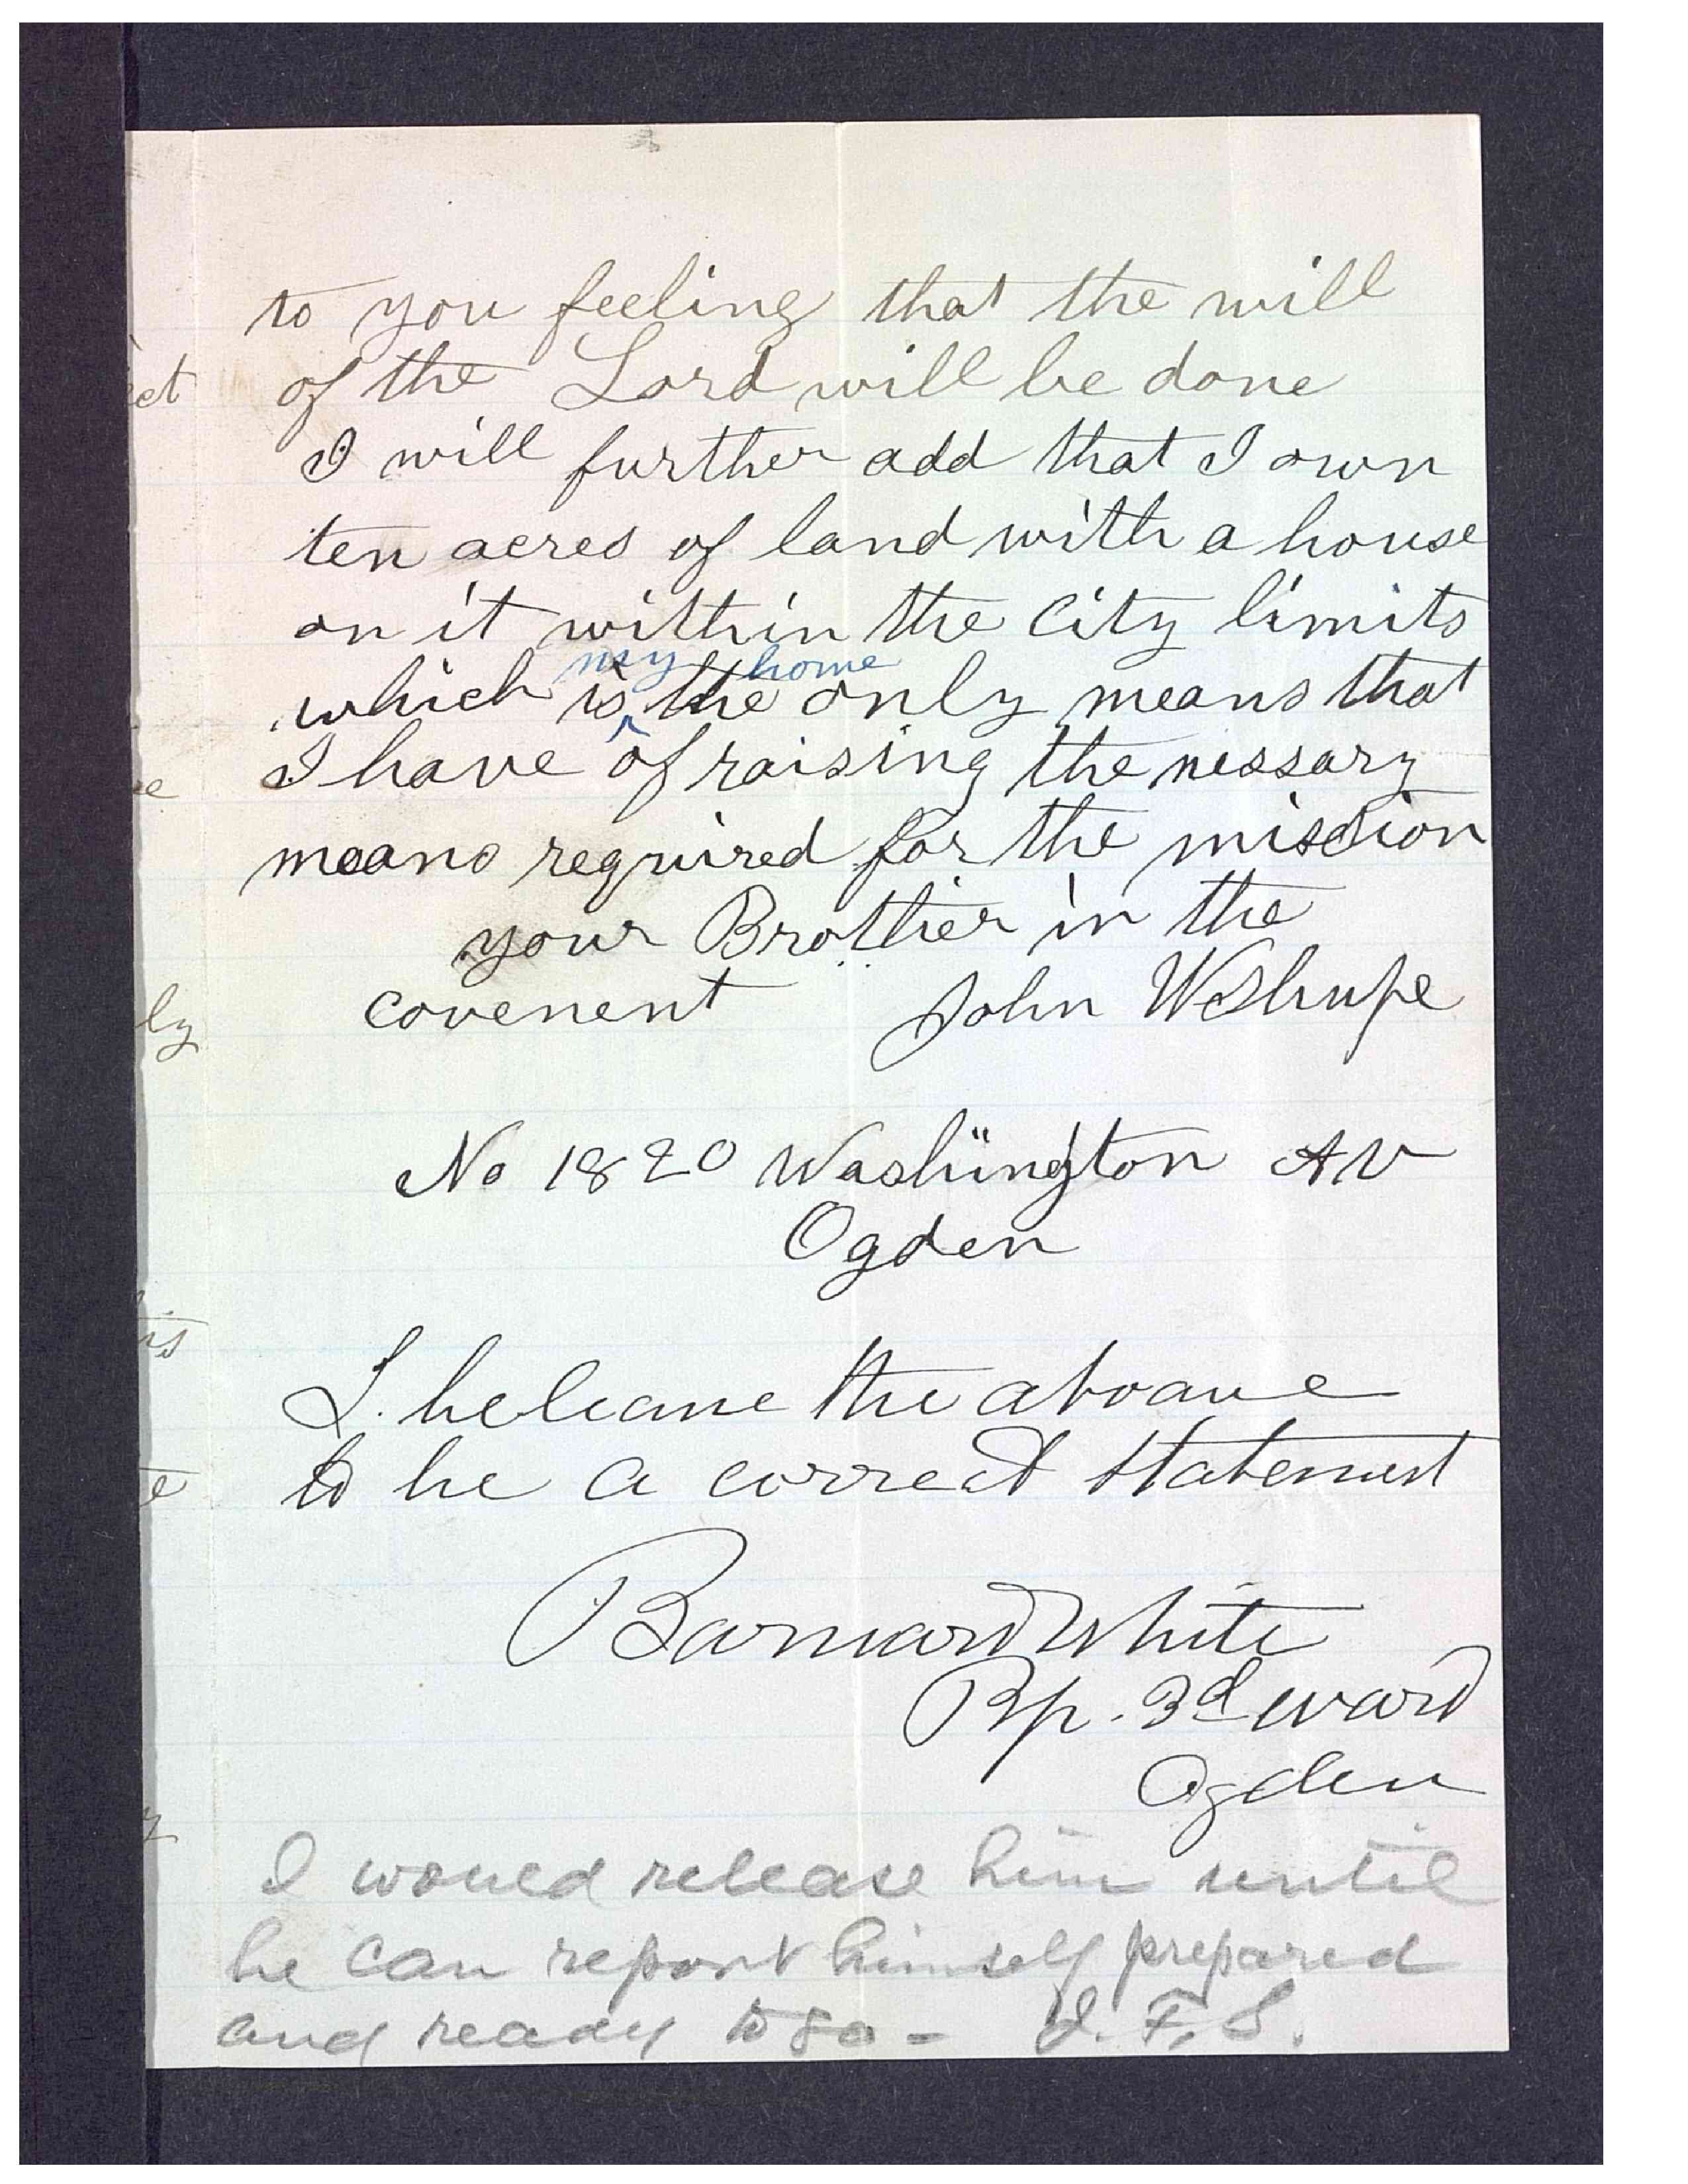 to you feeling that the will
of the Lord will be done
I will further add that I own
ten acres of land with a house
on it within the City limits
my home
which is the only means that
I have of raising the nessary
means required for the mission
your Brother in the
covenent John W Shupe
No 1820 Washington AV
Ogden
I. beleave the aboave
to be a correct statement
Barnard White
Bp. 3d ward
Ogden
I would release him until
he can report himself prepared
and ready to go - J. F. S.
ct
e
ly
is
e
y